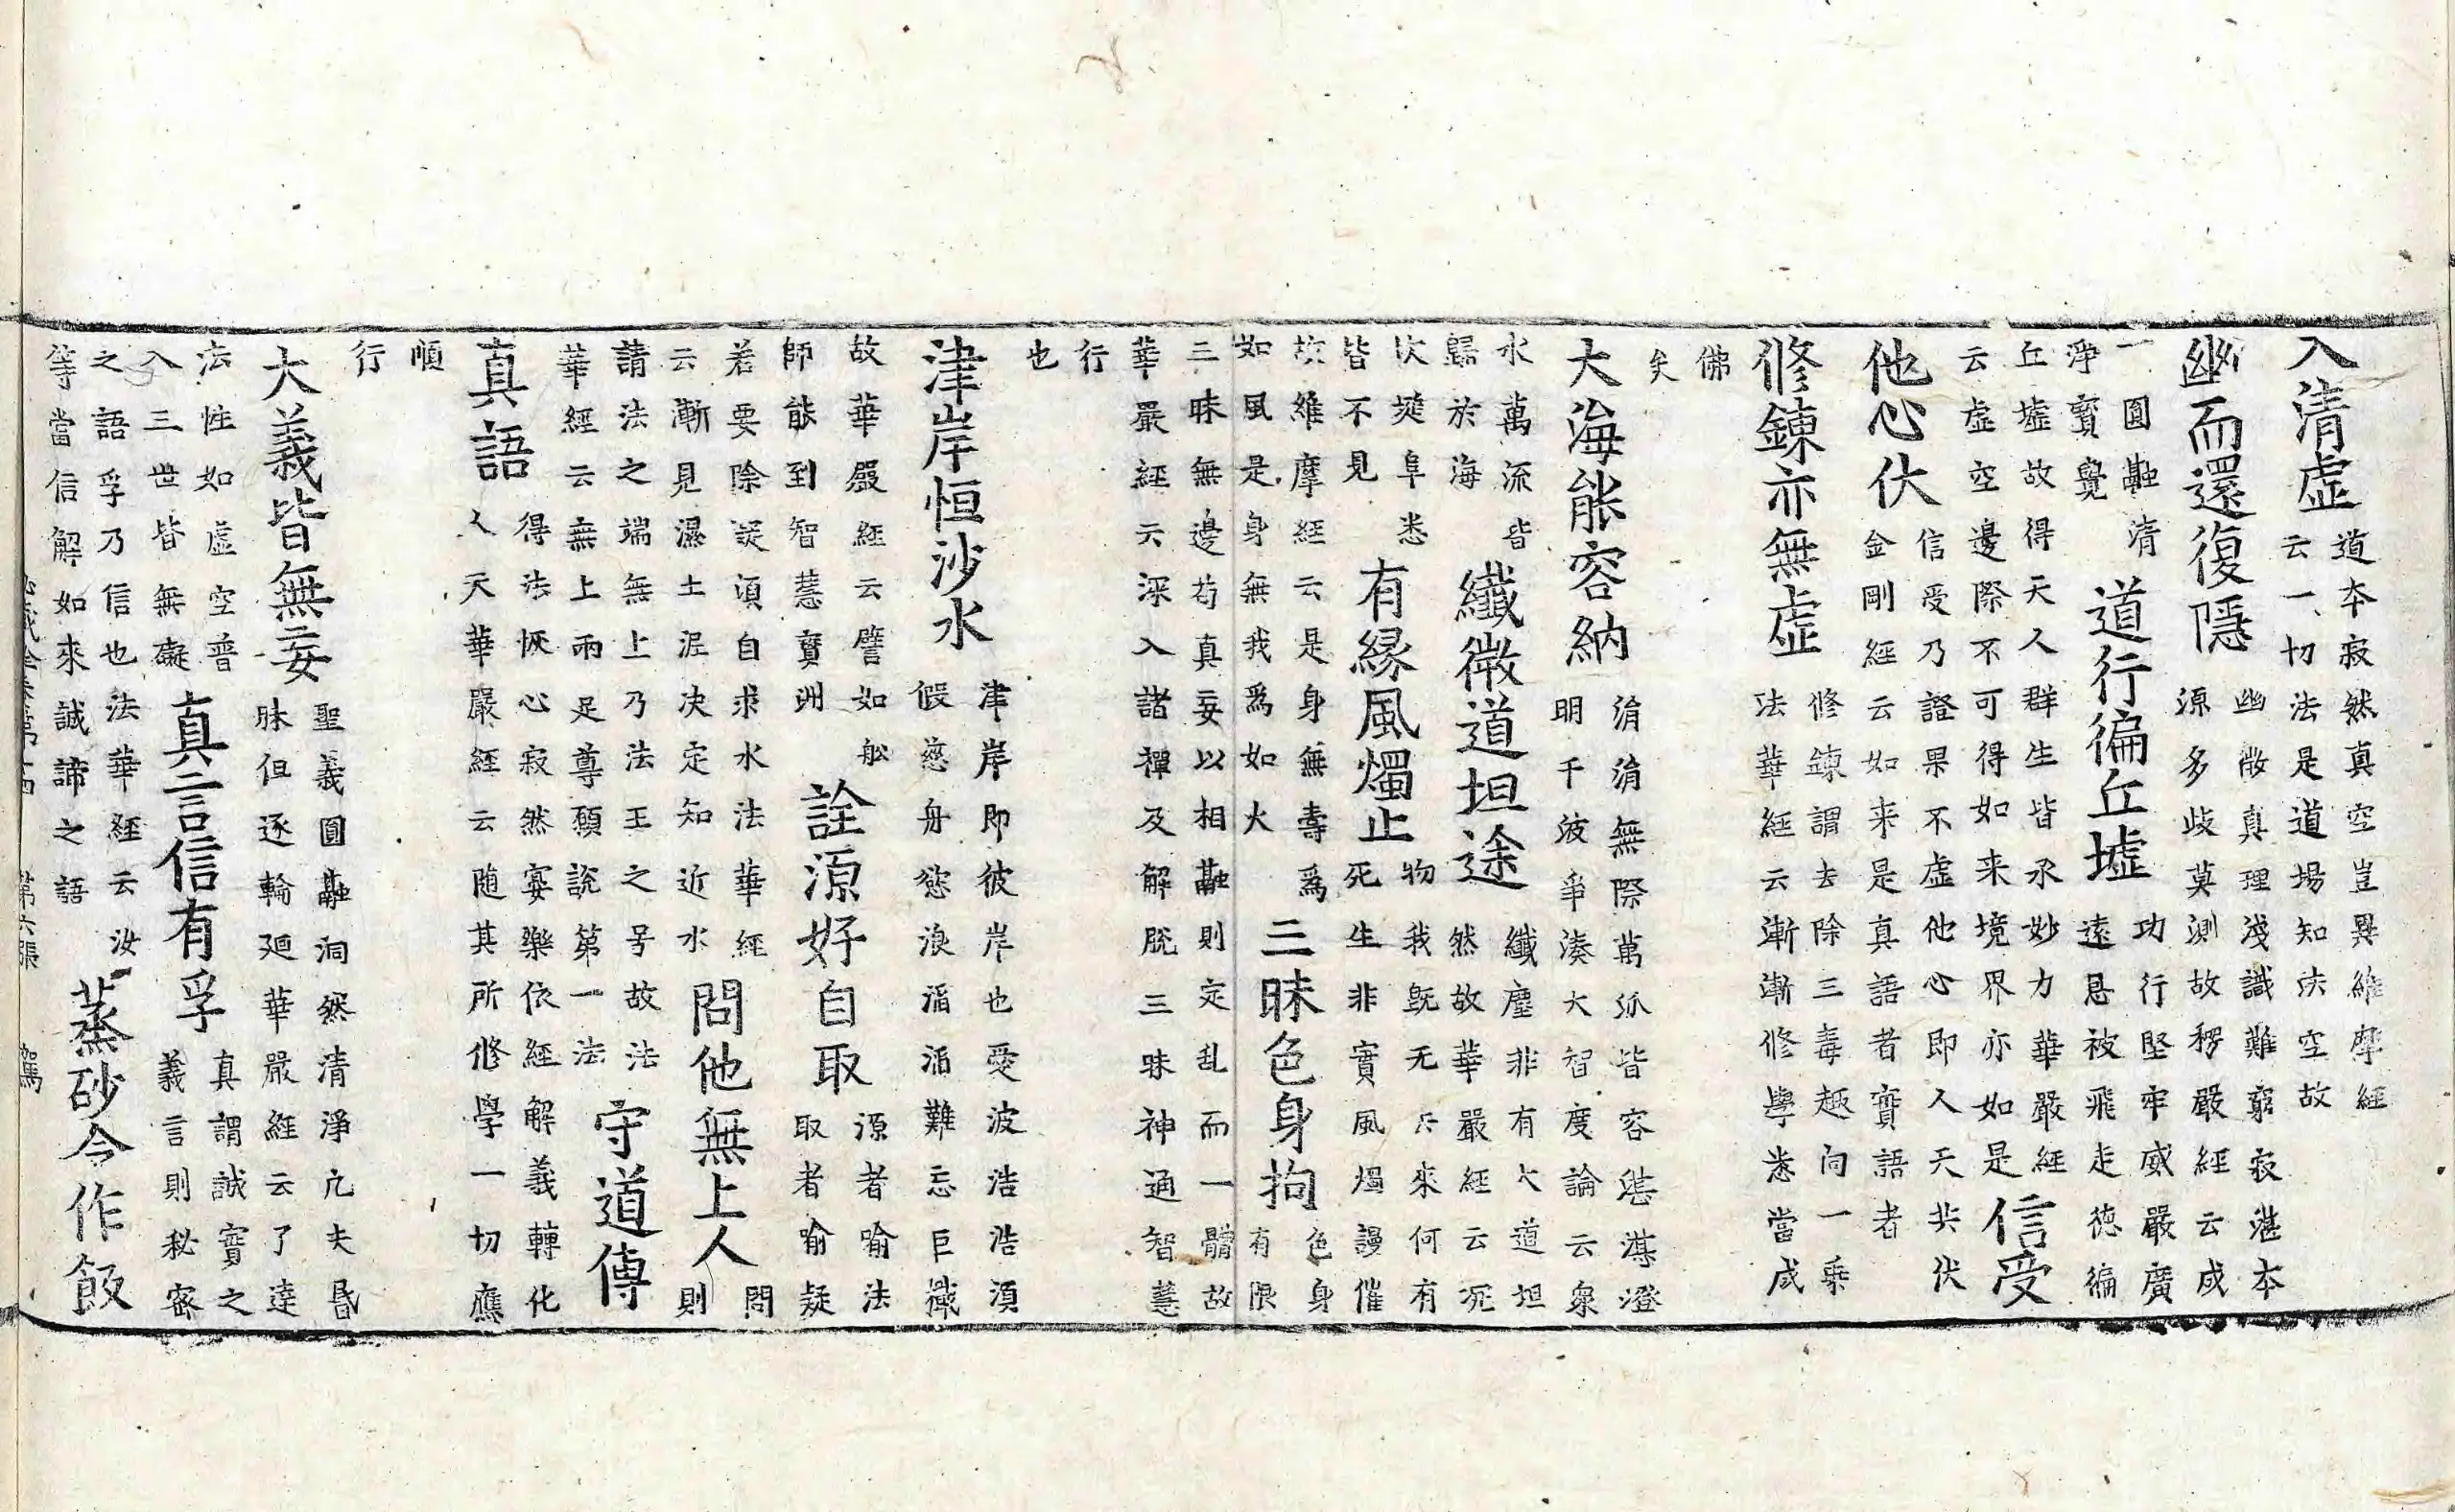 入清虛
道本寂然真空豈異維摩經
云一切法是道場知法空故
幽而還復隱
幽微真理淺識難窮寂湛本
源多歧莫測故楞嚴經云成
一圓融清
淨寶覺
道行徧丘墟
功行堅牢威嚴廣
遠恩被飛走徳徧
丘墟故得天人群生皆承妙力華嚴經
云虛空邊際不可得如来境界亦如是
信受
他心伏
信受乃證果不虛他心即人天共伏
金剛經云如来是真語者實語者
修鍊亦無虛
修鍊謂去除三毒趣向一乘
法華經云漸漸修學悉當成
佛
矣
大海能容納
涓涓無際萬派皆容湛湛澄
明千波爭湊大智度論云衆
水萬流皆
歸於海
纖微道坦途
纖塵非有大道坦
然故華嚴經云况
坎塠阜悉
皆不見
有縁風燭止
物我既无來何有
死生非實風燭謾催
故維摩經云是身無壽爲
如風是身無我爲如火
三昧色身拘
色身
有限
三昧無邊苟真妄以相融則定乱而一體故
華嚴經云深入諸禪及解脱三昧神通智慧
行
也
津岸恒沙水
津岸即彼岸也愛波浩浩須
假慈舟慾浪滔滔難忘巨檝
故華嚴經云譬如舩
師能到智慧寶洲
詮源好自取
源者喻法
取者喻疑
若要除疑須自求水法華經
云漸見濕土泥决定知近水
問他無上人
問
則
請法之端無上乃法王之号故法
華經云無上兩足尊願説第一法
守道傳
真語
得法恢心寂然寞樂依經解義轉化
人天華嚴經云随其所修學一切應
順
行
大義皆無妄
聖義圓融洞然清淨凢夫昬
昧但逐輪廻華嚴經云了達
法性如虛空普
入三世皆無礙
真言信有孚
真謂誠實之
義言則秘密
之語孚乃信也法華經云汝
等當信解如來誠諦之語
蒸砂今作飯
第六張